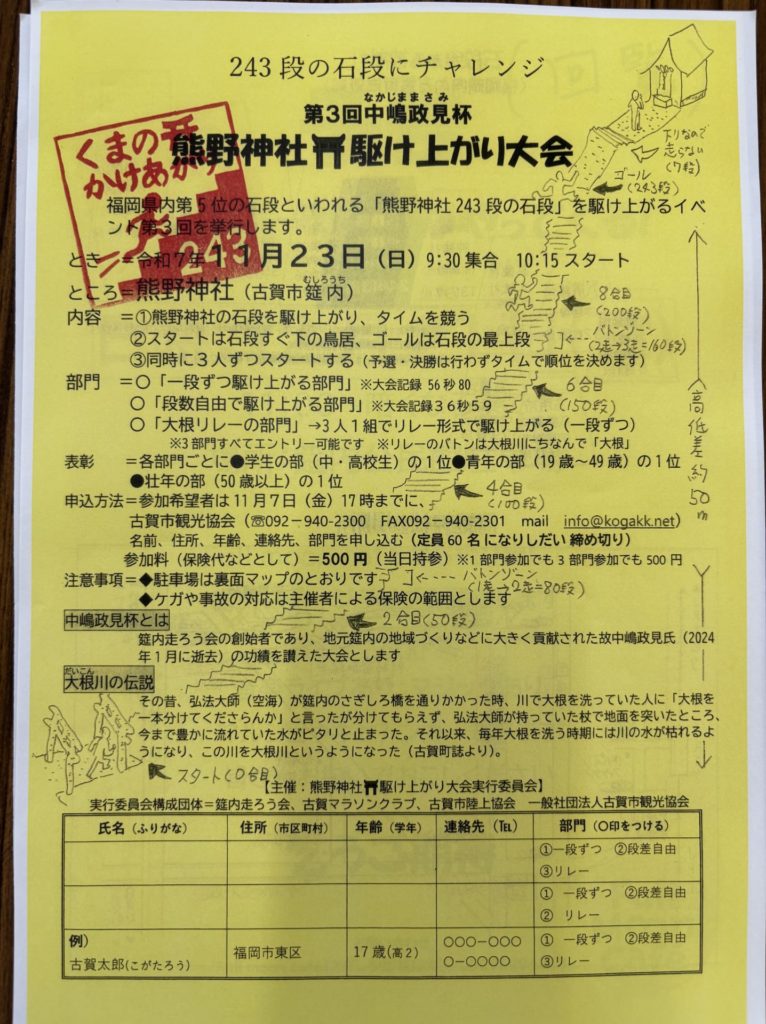 243段の石段にチャレンジ
なかじままさみ
第3回中嶋政見杯
熊野神社⛩駆け上がり大会
くまの
かけあがり
243
下りなので
走らない
(7段)
ゴール
(243段)
福岡県内第5位の石段といわれる「熊野神社243段の石段」を駆け上がるイベ
ント第3回を挙行します。
とき ＝令和7年11月23日（日）9:30集合 10:15スタート
むしろうち
ところ＝熊野神社（古賀市筵内）
8合目
(200段)
内容 ＝①熊野神社の石段を駆け上がり、タイムを競う
②スタートは石段すぐ下の鳥居、ゴールは石段の最上段
バトンゾーン
(2走→3走=160段)
③同時に3人ずつスタートする（予選・決勝は行わずタイムで順位を決めます）
部門 ＝○「一段ずつ駆け上がる部門」※大会記録 56秒80
6合目
(150段)
○「段数自由で駆け上がる部門」※大会記録36秒59
○「大根リレーの部門」→3人1組でリレー形式で駆け上がる（一段ずつ）
※3部門すべてエントリー可能です ※リレーのバトンは大根川にちなんで「大根」
高低差約50m
表彰 ＝各部門ごとに●学生の部（中・高校生）の1位●青年の部（19歳～49歳）の1位
●壮年の部（50歳以上）の1位
4合目
(100段)
申込方法＝参加希望者は11月7日（金）17時までに、
古賀市観光協会（☏092－940-2300 FAX092－940-2301 mail info@kogakk.net）
名前、住所、年齢、連絡先、部門を申し込む（定員60名になりしだい締め切り）
参加料（保険代などとして）＝500円（当日持参）※1部門参加でも3部門参加でも500円
注意事項＝◆駐車場は裏面マップのとおりです
バトンゾーン
(1走→2走=80段)
◆ケガや事故の対応は主催者による保険の範囲とします
中嶋政見杯とは
2合目(50段)
筵内走ろう会の創始者であり、地元筵内の地域づくりなどに大きく貢献された故中嶋政見氏（2024
年1月に逝去）の功績を讃えた大会とします
だいこん
大根川の伝説
その昔、弘法大師（空海）が筵内のさぎしろ橋を通りかかった時、川で大根を洗っていた人に「大根を
一本分けてくださらんか」と言ったが分けてもらえず、弘法大師が持っていた杖で地面を突いたところ、
今まで豊かに流れていた水がピタリと止まった。それ以来、毎年大根を洗う時期には川の水が枯れるよ
うになり、この川を大根川というようになった（古賀町誌より）。
スタート(0合目)
【主催：熊野神社⛩駆け上がり大会実行委員会】
実行委員会構成団体＝筵内走ろう会、古賀マラソンクラブ、古賀市陸上協会 一般社団法人古賀市観光協会
氏名（ふりがな） 住所（市区町村） 年齢（学年） 連絡先（℡） 部門（○印をつける）
①一段ずつ ②段差自由
③リレー
① 一段ずつ ②段差自由
② リレー
例）
古賀太郎(こがたろう) 福岡市東区 17歳(高2) ○○○－○○○○－○○○○ ① 一段ずつ ②段差自由
③リレー